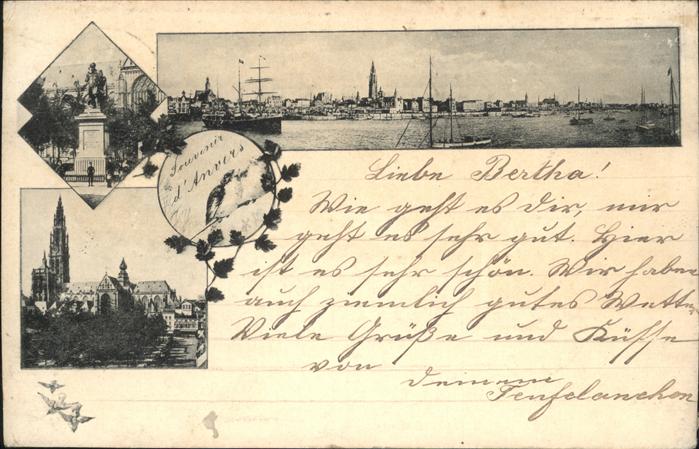 Souvenir
d'Anvers
Liebe Bertha!
Wie geht es dir, mir
geht es sehr gut. Hier
ist es sehr schön. Wir haben
auch ziemlich gutes Wetter
Viele Grüße und Küsse
von
deinem